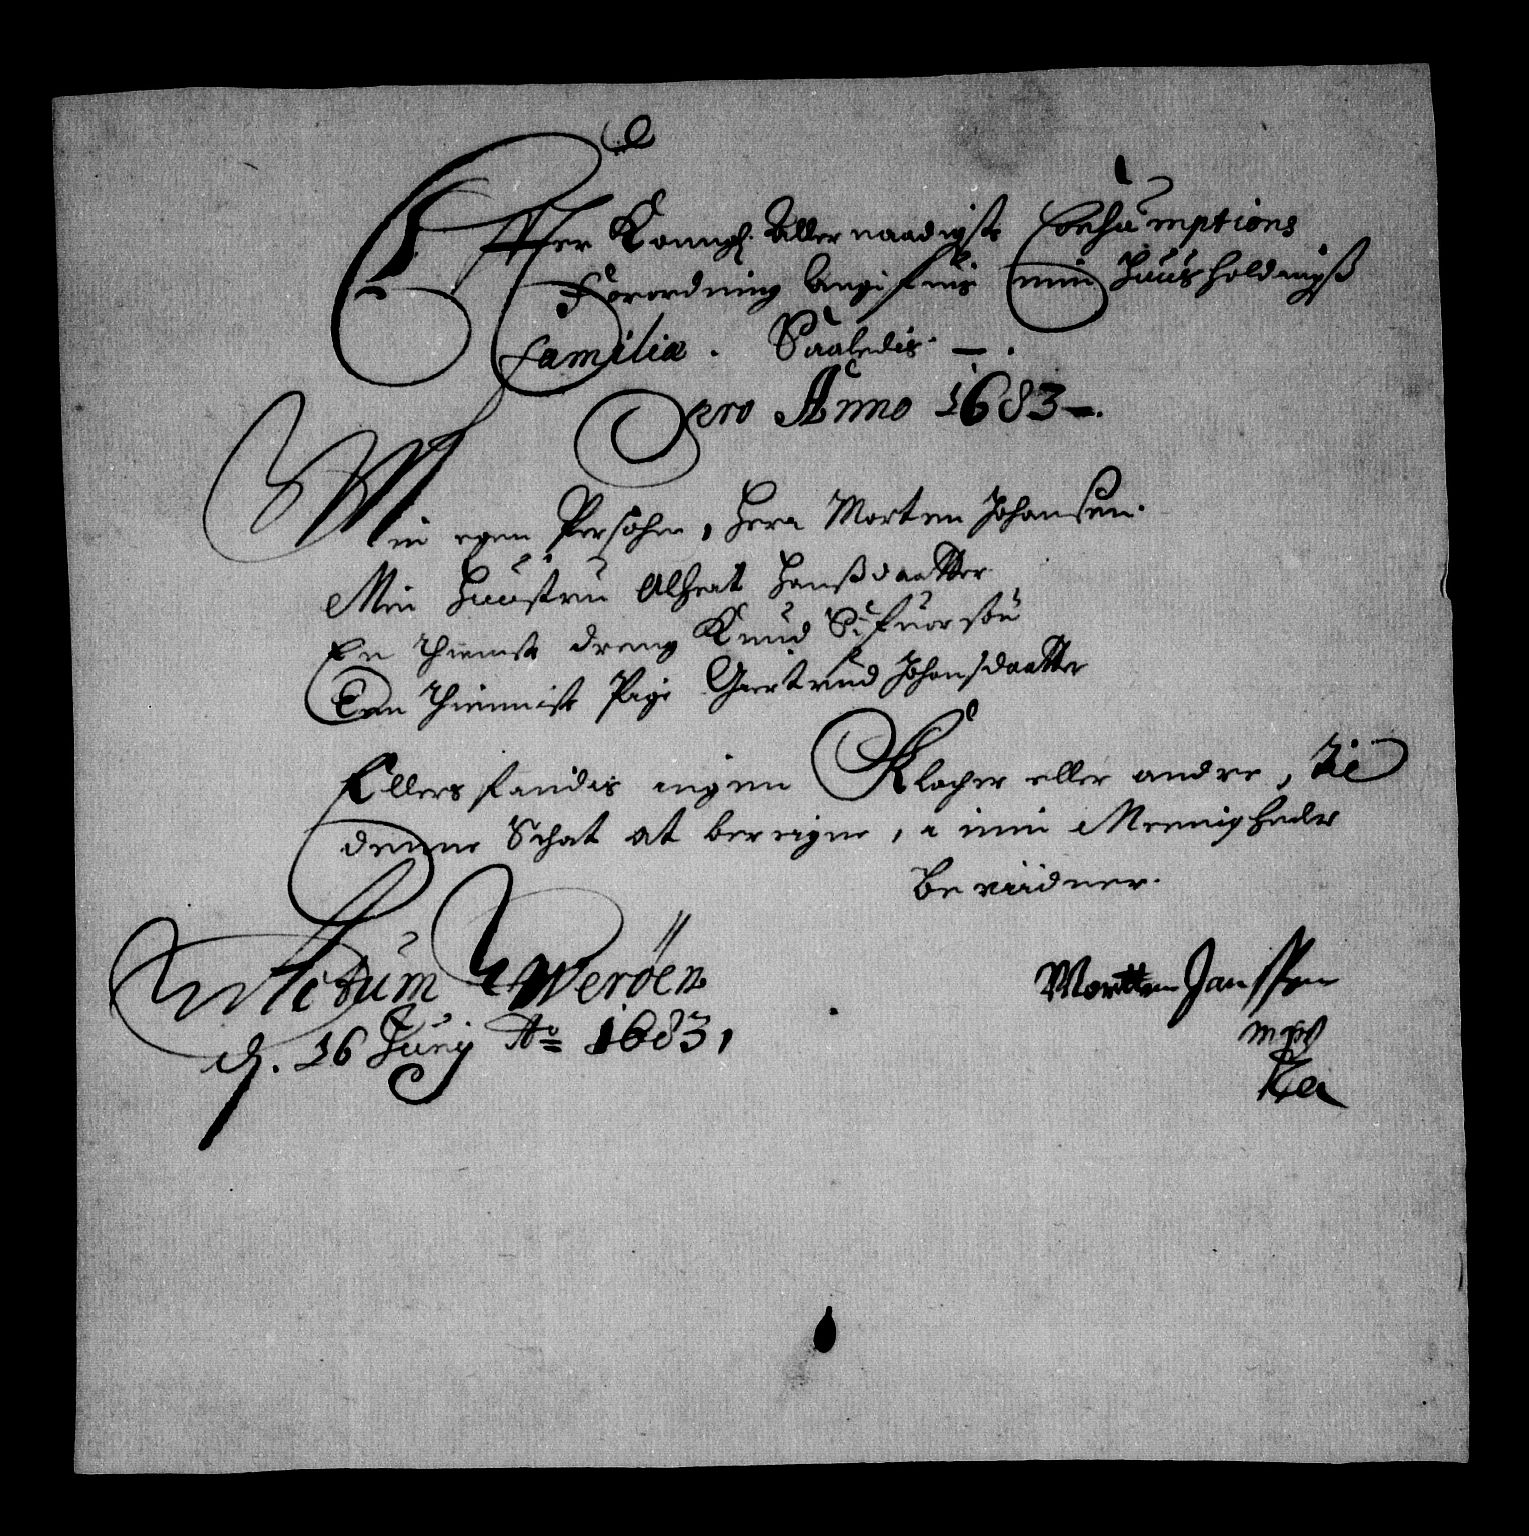 Effter Konngl. Aller naadigste Consumptions
Forordning Angifves min Huusholdnigs
Familia. Saaledis - .
pro Anno 1683 -.
Min egen Persohn, Herr Morten Johansen.
Min Huustru Alheat Hansdaatter
En thienste dreng Knud Sifuorsøn
En thienniste Pige Giertrud Johansdaatter
Ellers findis ingen Klocher eller andre, til
denne Schat at beregne, i min Meenigheder
Be
Actum Werøen
d. 16 Junij Ao 1683,
Mortten Janssen
mpp